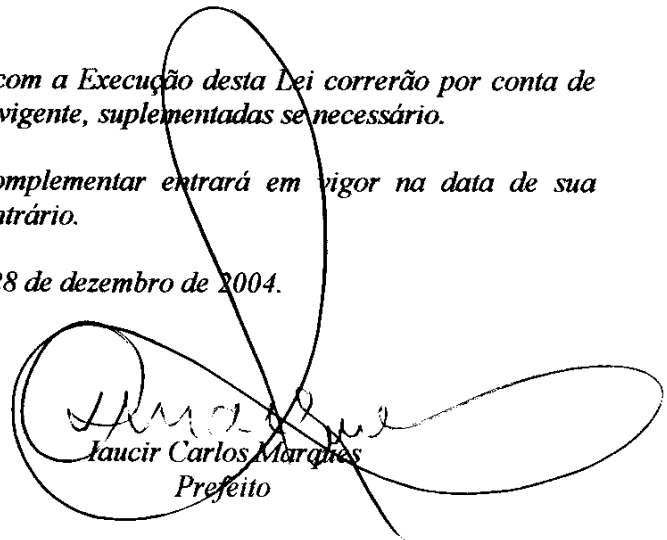 com a Execução desta Lei correrão por conta de
vigente, suplementadas se necessário.
omplementar entrará em vigor na data de sua
ntrário.
28 de dezembro de 2004.
Iaucir Carlos Marques
Prefeito